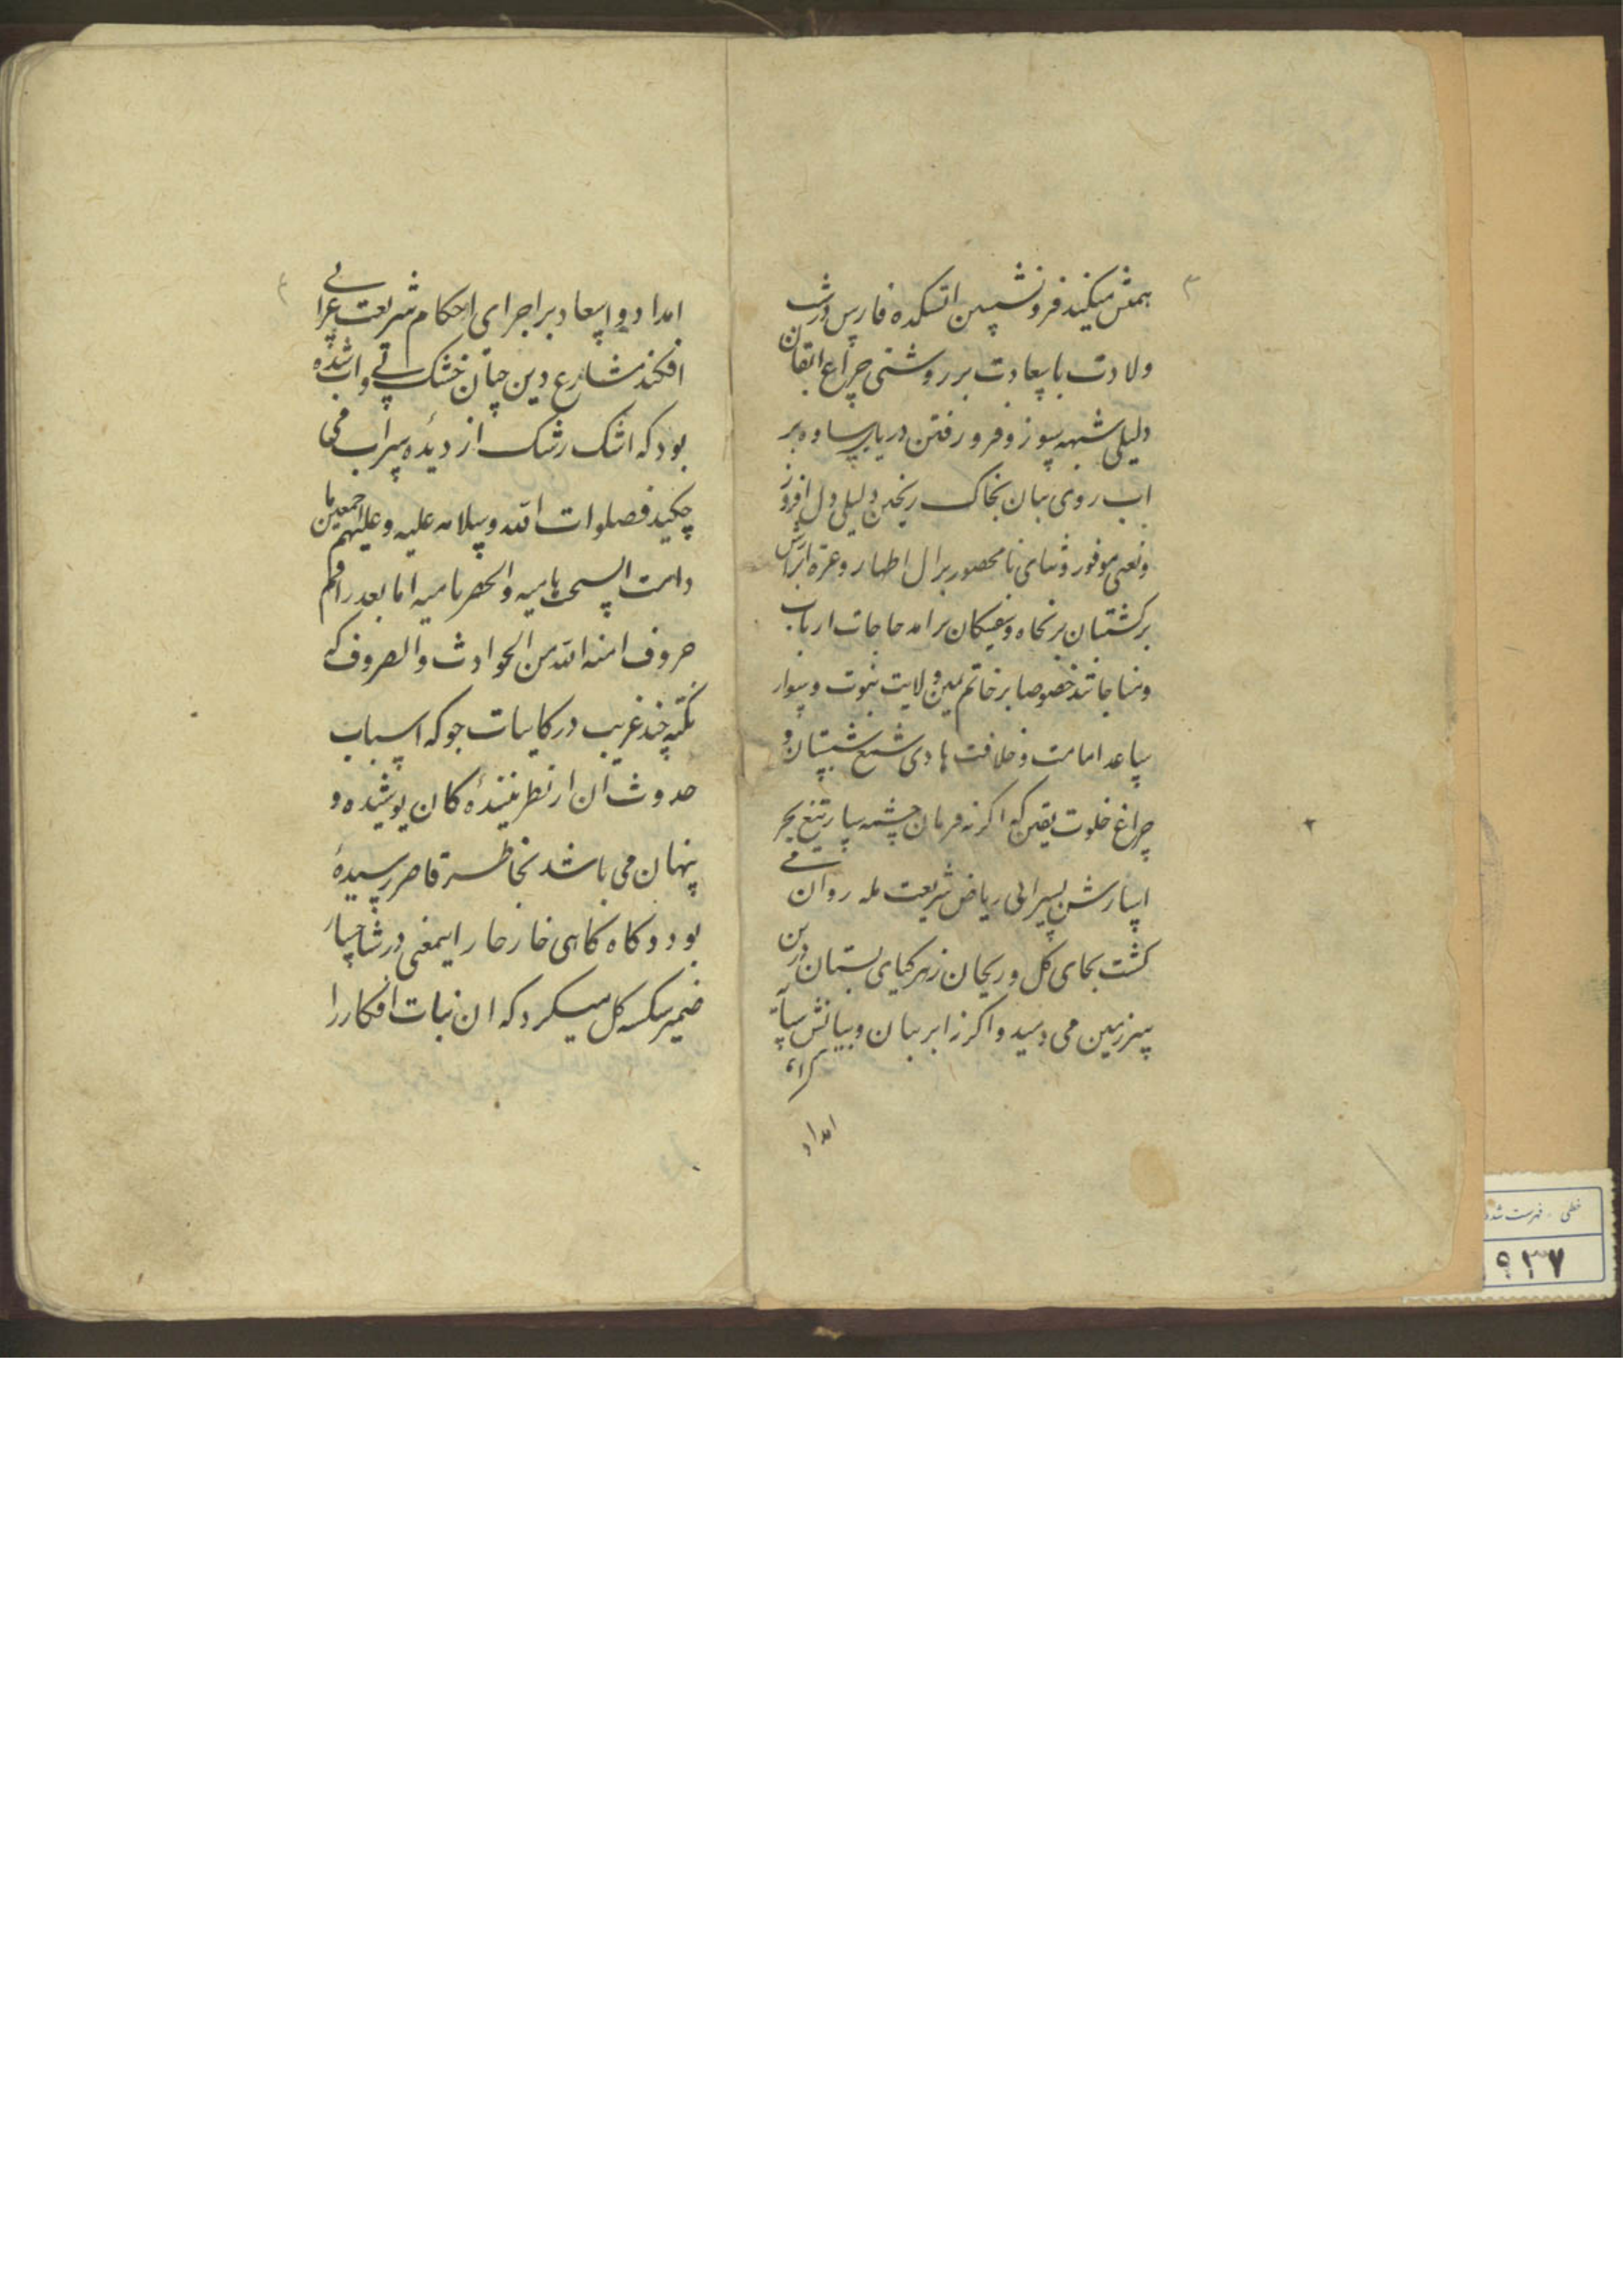 ۳
همتش میکند فرونشستن اتشکده فارس در شب
ولادت با سعادت بر روشنی چراغ اتقان
دلیلی شبهه سوز و فرو رفتن دریای ساوه بر
اب روی بیان بخاک ریختن دلیلی دل افروز
و نعمی موفور و ثنای نامحصور بر ال اطهار و عترة ابرارش
برکشتیان بر نجاه و سفینکان برامد حاجات ارباب
و مناجاتند خصوصا بر خاتم یمین ولایت نبوت و سوار
ساعد امامت و خلافت هادی شمع شبستان و
چراغ خلوت یقین که اکر نه فرمان چشمه سار تیغ بحر
اسارش بسیرابی ریاض شریعت مله روان می
کشت بجای کل و ریحان زهر کیای بستان درین
سرزمین می دمید و اکر نه ابر بیان و بیانش سایة
امداد
۲
۴
امداد و اسعاد بر اجرای احکام شریعت غرا نی
افکند مشارع دین چنان خشک و بی اب شده
بود که اشک رشک از دیده سراب می
چکید فصلوات الله و سلامه علیه و علیهم اجمعین ما
دامت السحب هامیه و الخضر نامیه اما بعد راقم
حروف امنه الله من الحوادث و الصروف که
نکته چند غریب در کاینات جو که اسباب
حدوث ان از نظر بینندهٔ کان پوشیده و
پنهان می باشد بخاطر قاصر رسیدهٔ
بود و کاه کاهی خار خار اینمعنی در شاخسار
ضمیر شکسته کل میکرد که ان نبات افکار را
خطی - فهرست شده
۹۳۷